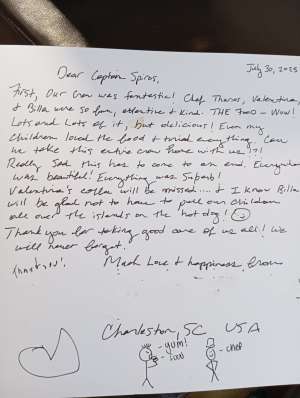 July 30, 2025
Dear Captain Spiros,
First, Our crew was fantastic! Chef Thanos, Valentina
& Billa were so fun, attentive & kind. THE FOOD - Wow!
Lots and Lots of it, but delicious! Even my
children loved the food & tried everything. Can
we take this entire crew home with us!?!
Really sad this has to come to an end. Everywhere
was beautiful! Everything was superb!
Valentina's coffee will be missed.... & I know Billa
will be glad not to have to pull our children
all over the islands on the "hot dog"!
Thank you for taking good care of us all! We
will never forget.
Much Love & happiness, from
Charleston, SC USA
- yum!
- food
- chef